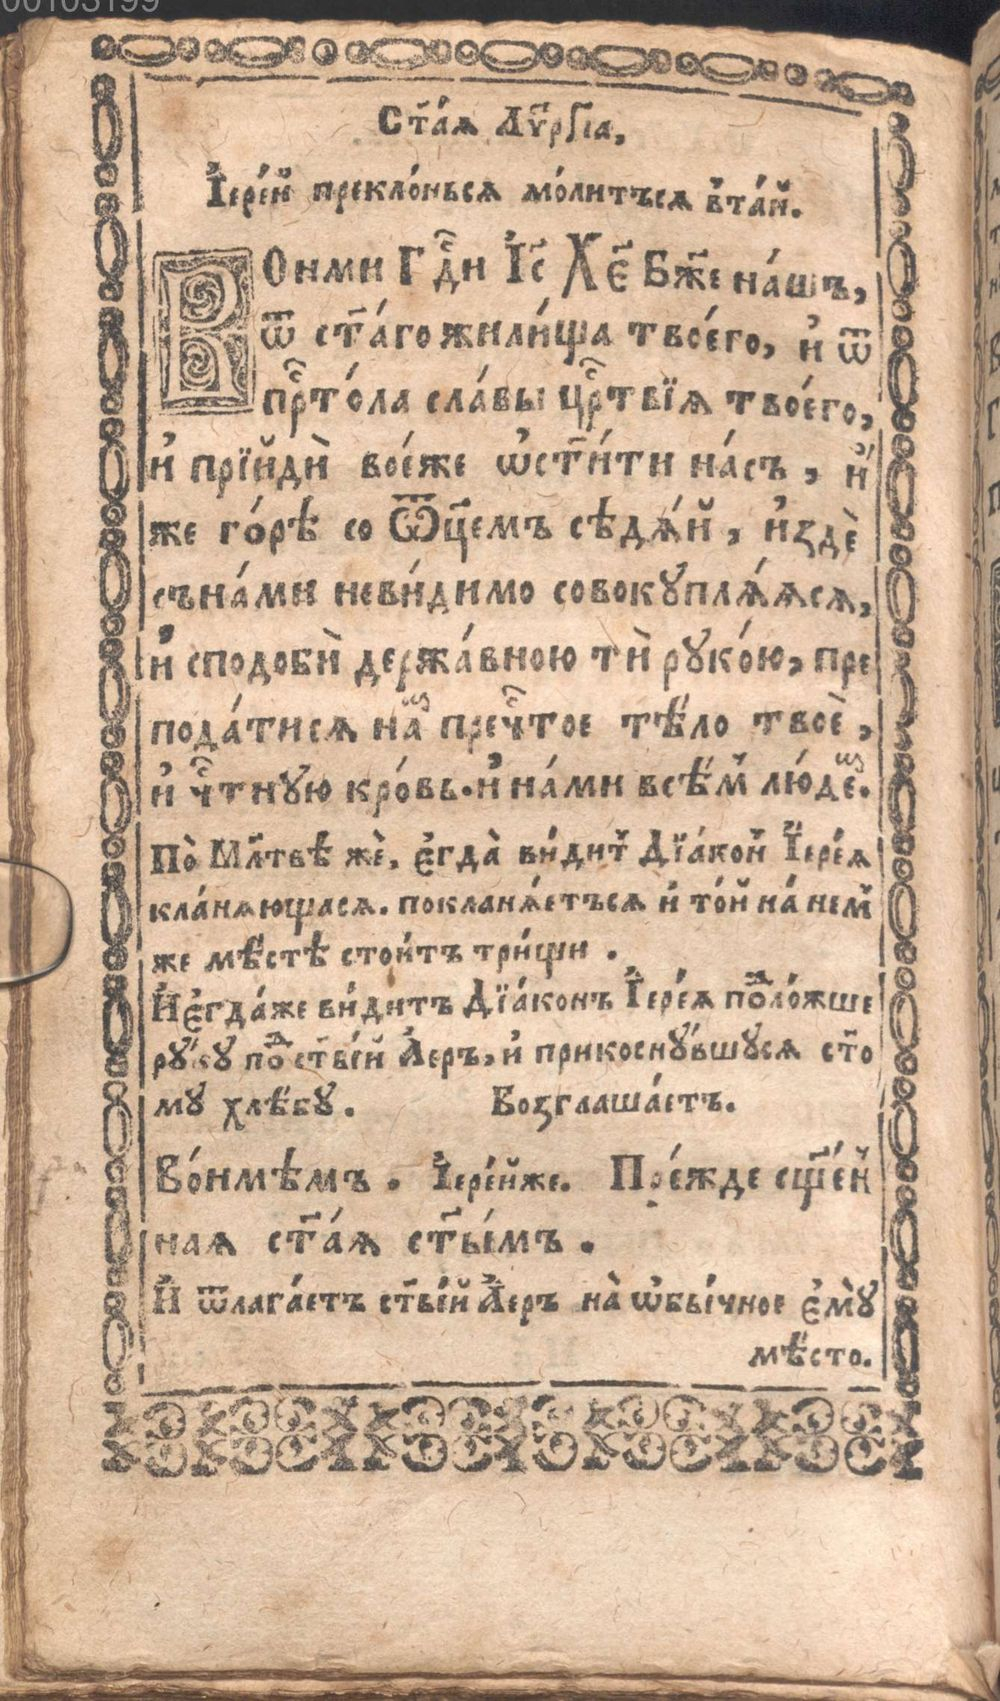 00103199
Ст҃а́ѧ Лѵ҃ргіа,
І҆ере́й прекло́ньсѧ мо́литъсѧ в̾та́й.
ВОнми Гдⷭ҇и І҆с҃ Хє҃ Бж҃е на́шъ,
ѿ ст҃а́го жили́ща твоего̀, и҆ ѿ
прⷭ҇то́ла сла́вы црⷭ҇твїѧ твоего̀,
и҆ прїйдѝ во́еже ѡ҆ст҃и́ти на́съ, и҆́
же го́рѣ со Ѿц҃емъ сѣдѧ́й, и҆ здѐ
съна́ми неви́димо совокꙋплѧ́ѧсѧ,
и҆ сподобѝ держа́вною тѝ рꙋко́ю, пре
пода́тисѧ на́ⷨ преч҇тое тѣ́ло твоѐ,
и҆ чⷭ҇тнꙋю кро́вь. и҆ на́ми всѣ́м̾ лю́деⷨ.
По̀ Мл҃твѣ жѐ, є҆гда̀ ви́дит̾ Дїа́кон̾ І҆ере́ѧ
кла́нѧющасѧ. покланѧ́етъсѧ и҆ то́й на́ нем̾
же мѣ́стѣ стои́тъ три́щи.
И҆ є҆гда́же ви́дитъ Дїа́конъ І҆ере́ѧ поⷣло́жше
рꙋ́кꙋ поⷣ ст҃ві́й А҆еръ, и҆ прикоснꙋ́вшꙋсѧ ст҃о
мꙋ хлѣ́бꙋ. Возглаша́етъ.
Во́нмѣмъ. І҆ере́йже. Пре́жде сщ҃е́н
наѧ ст҃а́ѧ ст҃ы́мъ.
И҆ ѿлага́етъ ст҃ве́й А҆́еръ на̀ ѡ҆бы́чное є҆мꙋ̀
мѣ́сто.